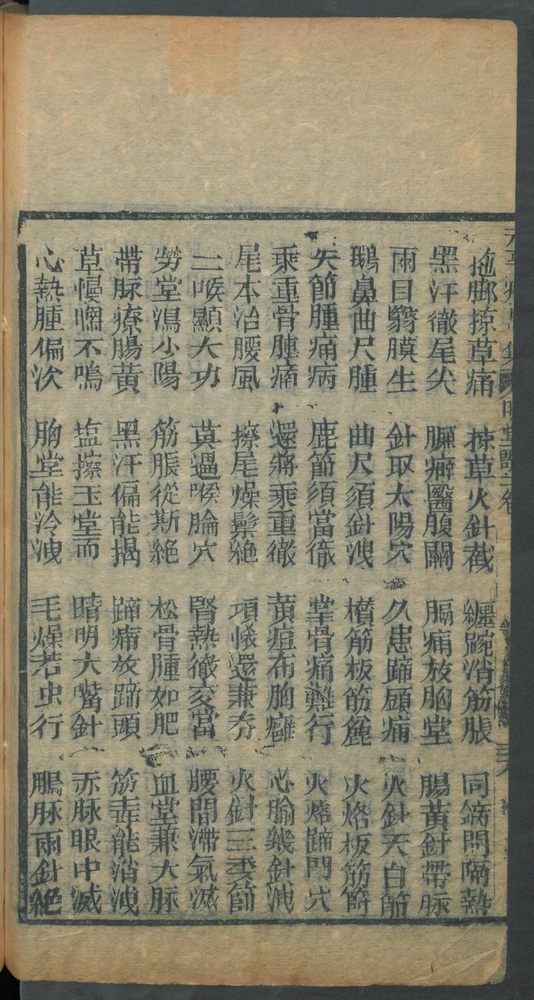 掠草痛　掠草火針截　纏腕消筋脹　同鎊問隔熱
黑汗徹尾尖　癖醫腹關　膈痛放胸堂　腸黃針帶脉
兩目翳膜生　針取太陽穴　久患蹄頭痛　火針天白節
鵝鼻曲尺腫　曲尺須針洩　橫筋板筋麁　火烙板筋
夫節腫痛病　鹿節須當徹　掌骨痛難行　火烙蹄門穴
乘重骨腫痛　還將乘重徹　黃疸布胸癰　心腧幾針洩
尾本治腰風　擦尾燥鬃絶　項惙還兼夯　火針三委節
二喉顯大功　莫過喉腧穴　腎熱徹交當　腰間滯氣滅
勞堂瀉小陽　筋脹從斯絶　松骨腫如肥　血堂兼大脉
帶脉療腸黃　黑汗偏能揭　蹄痛放蹄頭　筋毒能消洩
草慢𢣷不鳴　塩擦玉堂而　睛明大嘴針　赤脉眼中滅
心熱腫偏次　胸堂能冷洩　毛燥若虫行　鶻脉兩針絶